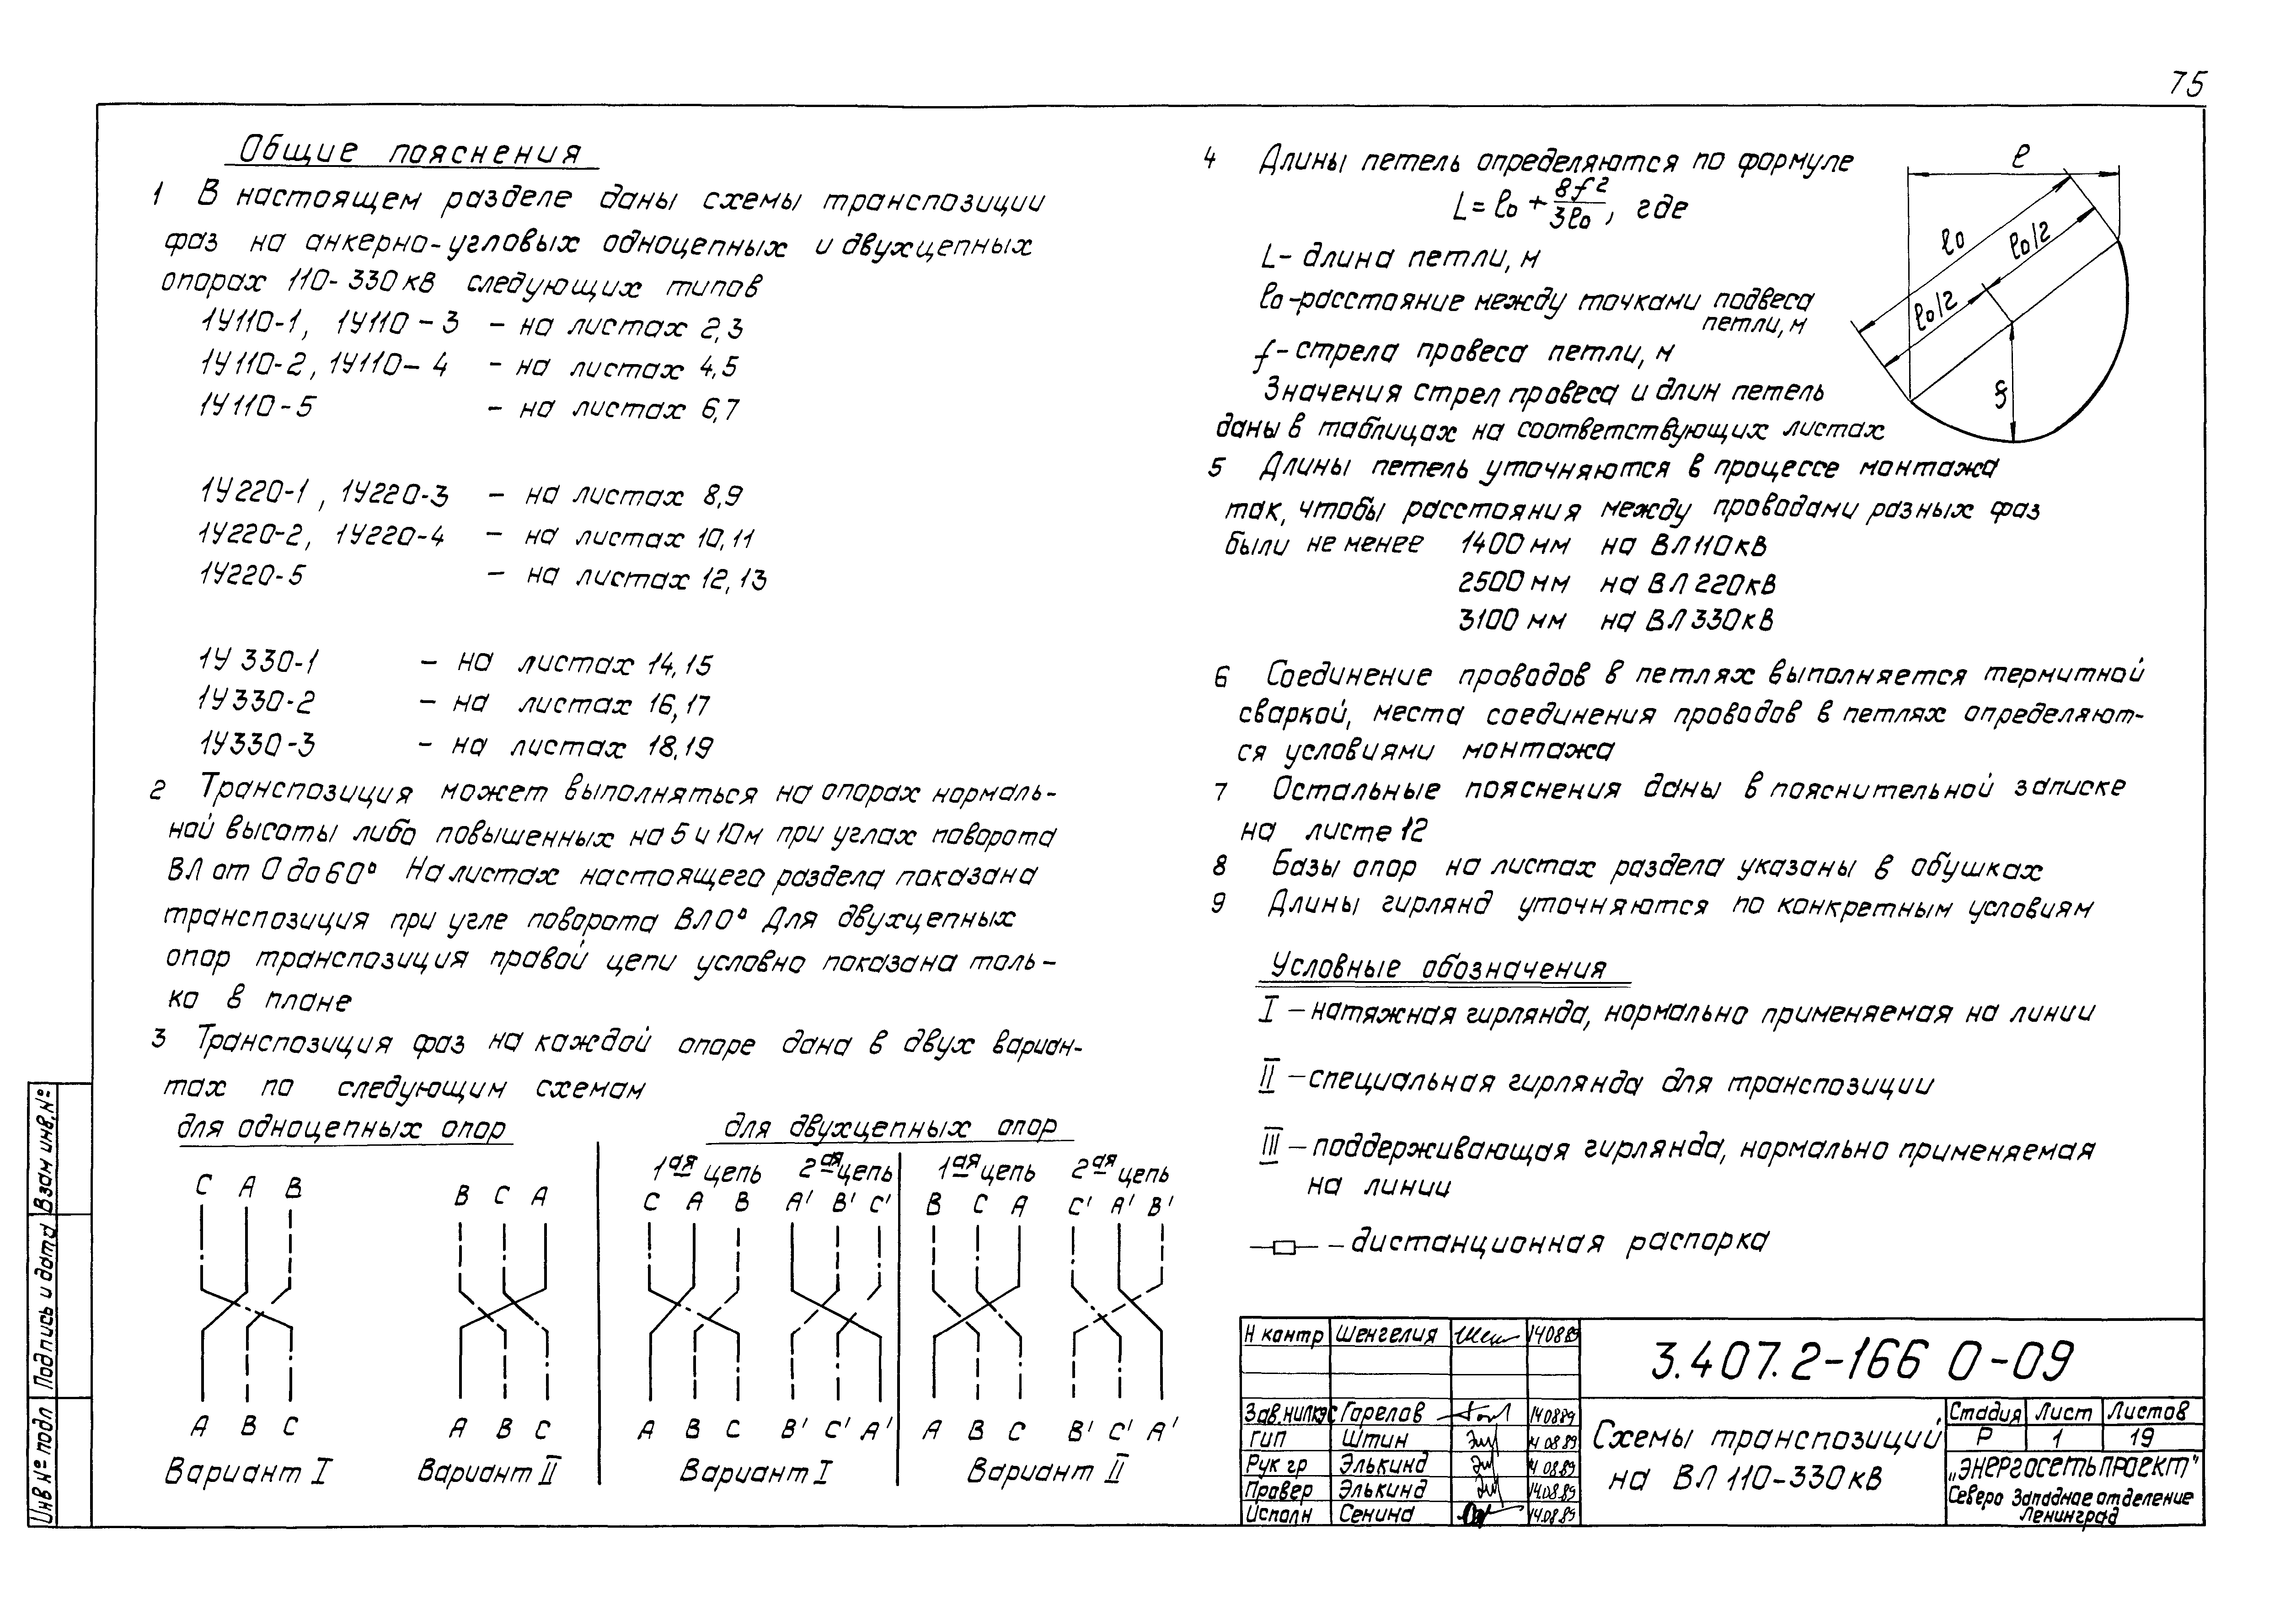 75
Общие пояснения
1 В настоящем разделе даны схемы транспозиции
фаз на анкерно-угловых одноцепных и двухцепных
опорах 110-330кВ следующих типов
1У110-1, 1У110-3 - на листах 2,3
1У110-2, 1У110-4 - на листах 4,5
1У110-5 - на листах 6,7
1У220-1, 1У220-3 - на листах 8,9
1У220-2, 1У220-4 - на листах 10,11
1У220-5 - на листах 12,13
1У330-1 - на листах 14,15
1У330-2 - на листах 16,17
1У330-3 - на листах 18,19
2 Транспозиция может выполняться на опорах нормаль-
ной высоты либо повышенных на 5 и 10м при углах поворота
ВЛ от 0 до 60° На листах настоящего раздела показана
транспозиция при угле поворота ВЛ 0° Для двухцепных
опор транспозиция правой цепи условно показана толь-
ко в плане
3 Транспозиция фаз на каждой опоре дана в двух вариан-
тах по следующим схемам
для одноцепных опор
C A B
A B C
Вариант I
B C A
A B C
Вариант II
для двухцепных опор
1ая цепь 2ая цепь
C A B A' B' C'
A B C B' C' A'
Вариант I
1ая цепь 2ая цепь
B C A C' A' B'
A B C B' C' A'
Вариант II
4 Длины петель определяются по формуле
L = l0 + 8f²/3l0, где
L - длина петли, м
l0 - расстояние между точками подвеса
петли, м
f - стрела провеса петли, м
Значения стрел провеса и длин петель
даны в таблицах на соответствующих листах
l
l0
l0/2
l0/2
f
5 Длины петель уточняются в процессе монтажа
так, чтобы расстояния между проводами разных фаз
были не менее 1400мм на ВЛ 110кВ
2500мм на ВЛ 220кВ
3100мм на ВЛ 330кВ
6 Соединение проводов в петлях выполняется термитной
сваркой, места соединения проводов в петлях определяют-
ся условиями монтажа
7 Остальные пояснения даны в пояснительной записке
на листе 12
8 Базы опор на листах раздела указаны в обушках
9 Длины гирлянд уточняются по конкретным условиям
Условные обозначения
I - натяжная гирлянда, нормально применяемая на линии
II - специальная гирлянда для транспозиции
III - поддерживающая гирлянда, нормально применяемая
на линии
- дистанционная распорка
Н контр Шенгелия 140889
Зав.НИЛКЭС Горелов 140889
ГИП Штин 14 08 89
Рук гр Элькинд 14 08.89
Провер Элькинд 14.08.89
Исполн Сенина 14.08.89
3.407.2-166 0-09
Схемы транспозиций
на ВЛ 110-330кВ
Стадия Лист Листов
Р 1 19
„Энергосетьпроект"
Северо Западное отделение
Ленинград
Инв № подл Подпись и дата Взам инв.№